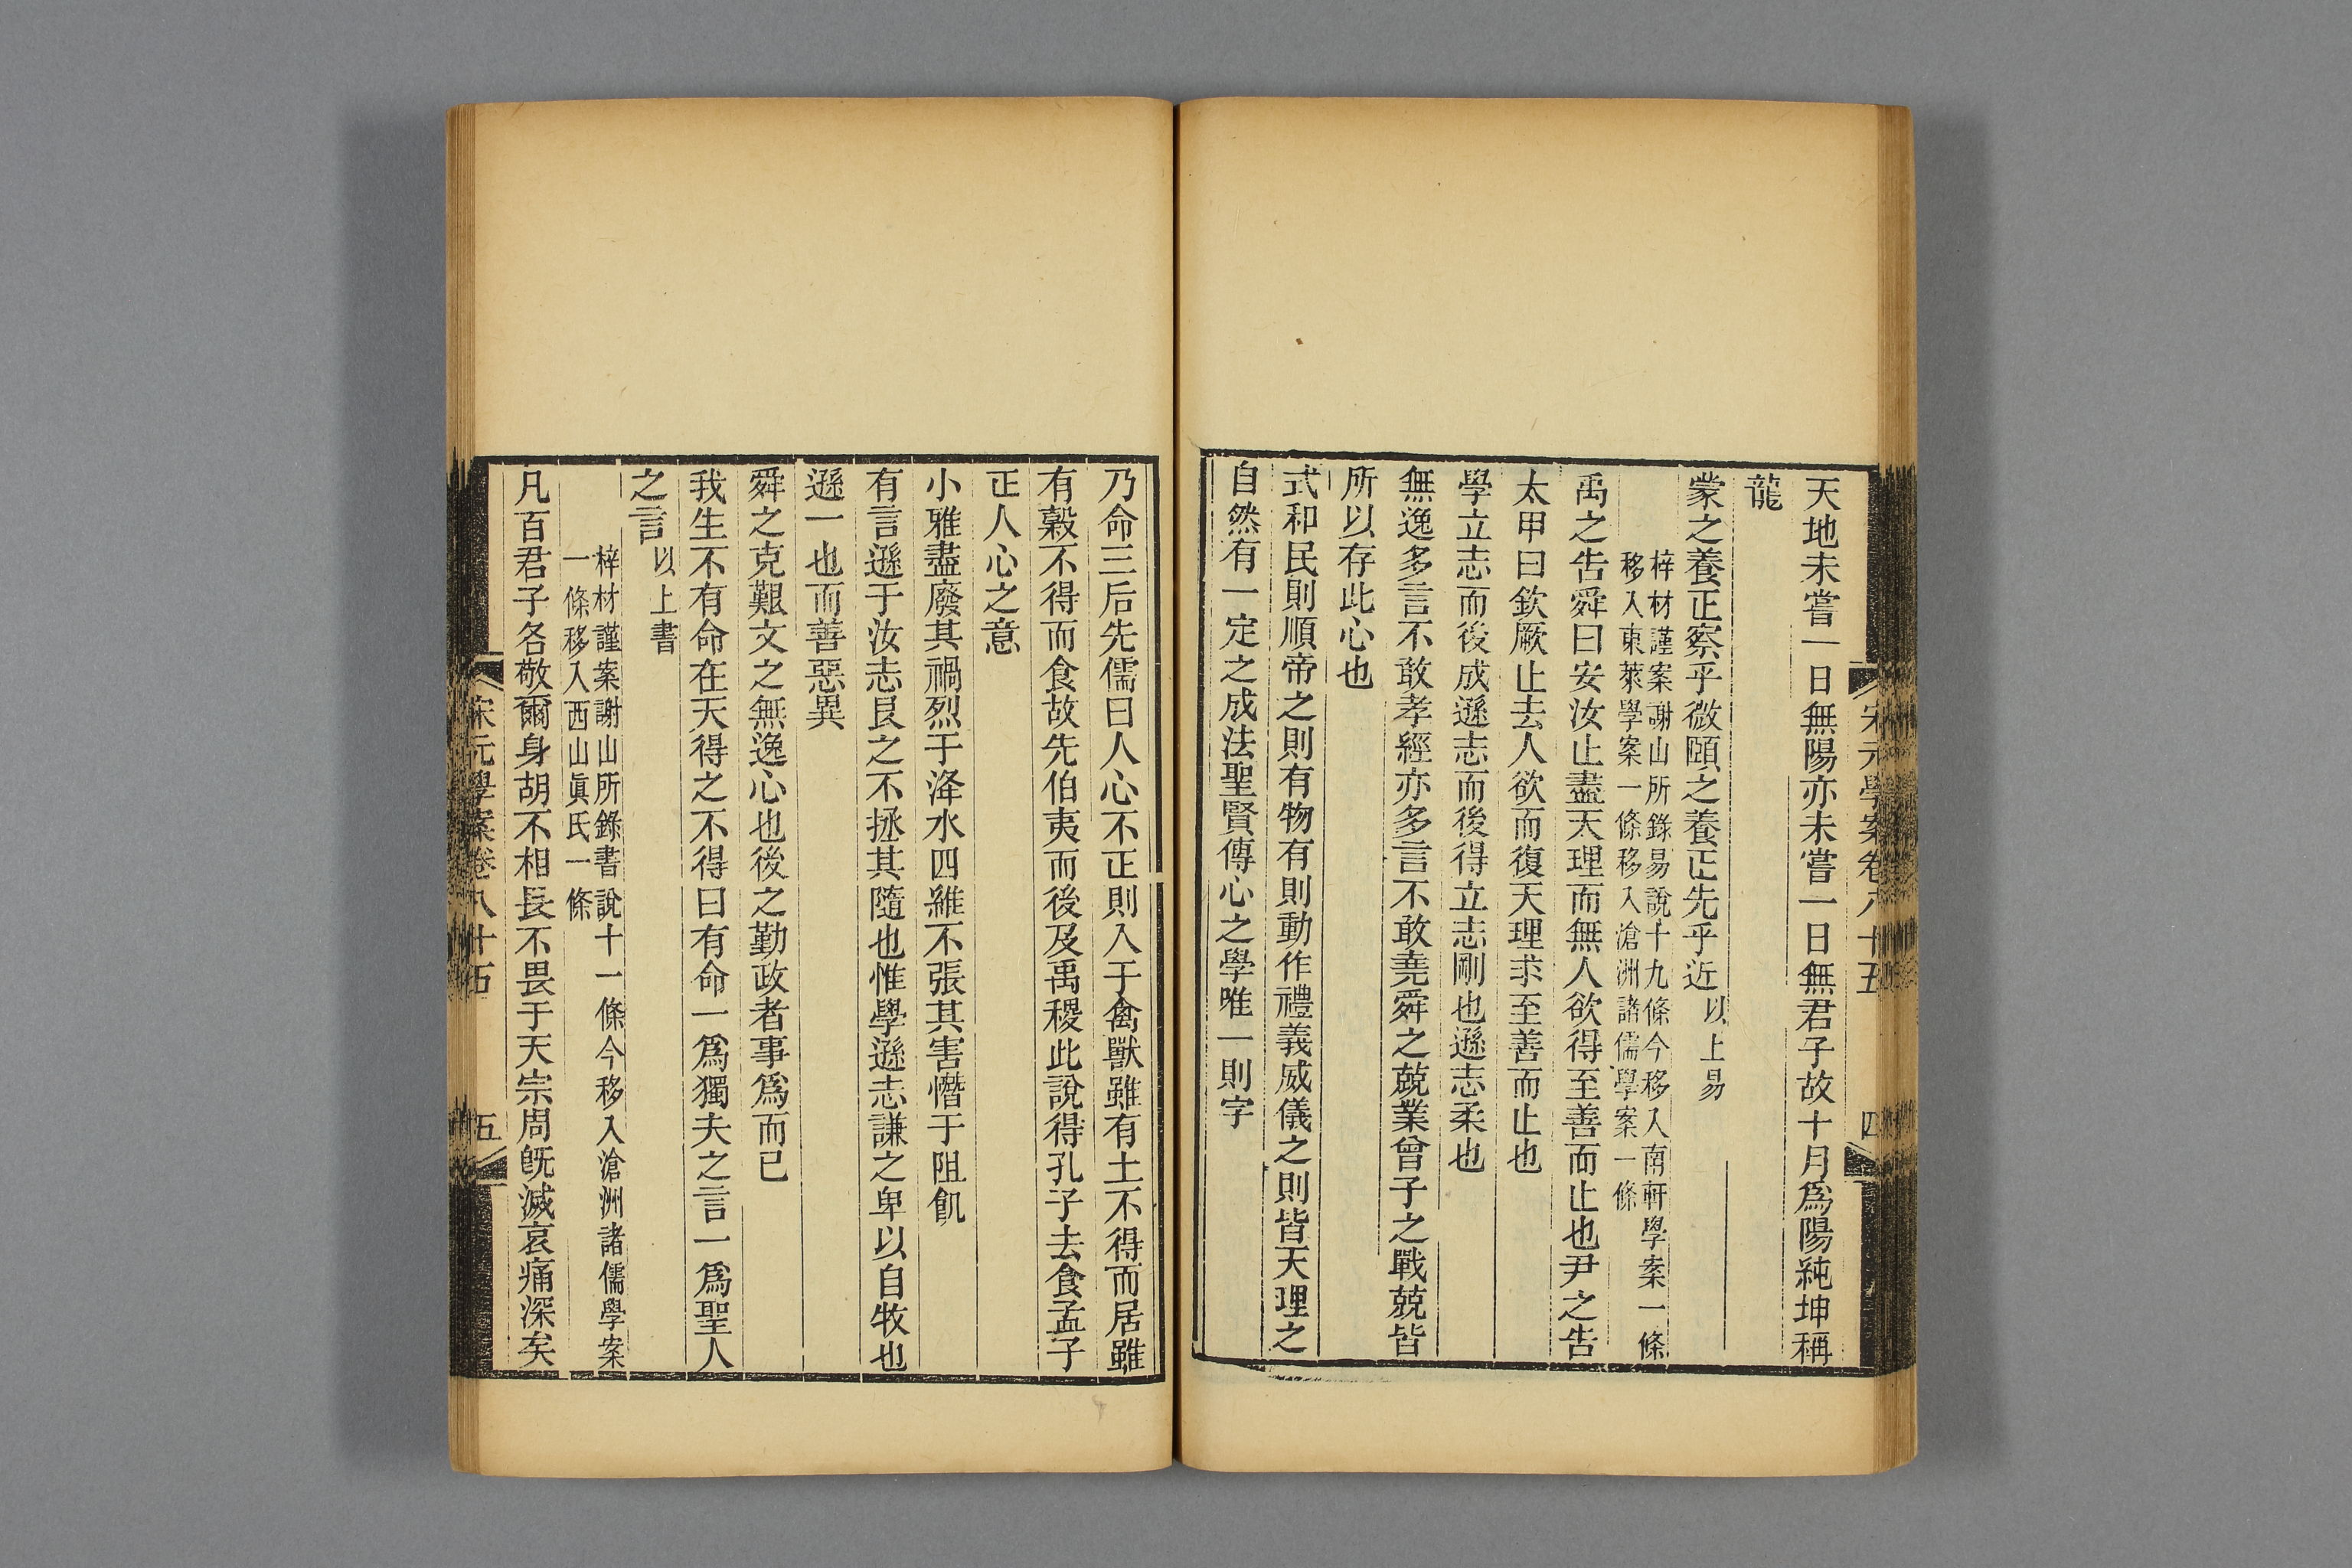 宋元學案卷八十五
四
天地未嘗一日無陽亦未嘗一日無君子故十月爲陽純坤稱
龍
蒙之養正察乎微頤之養正先乎近以上易
梓材謹案謝山所錄易說十九條今移入南軒學案一條
移入東萊學案一條移入滄洲諸儒學案一條
禹之告舜曰安汝止盡天理而無人欲得至善而止也尹之告
太甲曰欽厥止去人欲而復天理求至善而止也
學立志而後成遜志而後得立志剛也遜志柔也
無逸多言不敢孝經亦多言不敢堯舜之兢業曾子之戰兢皆
所以存此心也
式和民則順帝之則有物有則動作禮義威儀之則皆天理之
自然有一定之成法聖賢傳心之學唯一則字
乃命三后先儒曰人心不正則入于禽獸雖有土不得而居雖
有穀不得而食故先伯夷而後及禹稷此說得孔子去食孟子
正人心之意
小雅盡廢其禍烈于洚水四維不張其害憯于阻飢
有言遜于汝志艮之不拯其隨也惟學遜志謙之卑以自牧也
遜一也而善惡異
舜之克艱文之無逸心也後之勤政者事爲而已
我生不有命在天得之不得曰有命一爲獨夫之言一爲聖人
之言以上書
梓材謹案謝山所錄書說十一條今移入滄洲諸儒學案
一條移入西山眞氏一條
凡百君子各敬爾身胡不相長不畏于天宗周旣滅哀痛深矣
宋元學案卷八十五
五